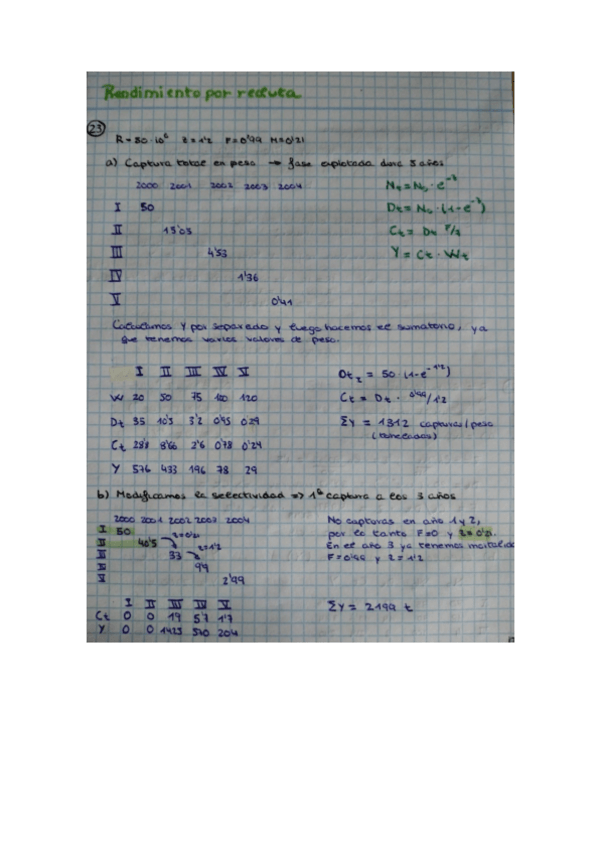 Rendimiento por recluta
23
R = 50·10⁶ Z = 1'2 F = 0'99 M = 0'21
a) Captura total en peso → fase explotada dura 5 años
2000 2001 2002 2003 2004
I 50
II 15'05
III 4'53
IV 1'36
V 0'41
Nt = N₀ · e⁻ᶻ
Dt = N₀ · (1-e⁻ᶻ)
Ct = Dt F/Z
Y = Ct · Wt
Calculamos Y por separado y luego hacemos el sumatorio, ya
que tenemos varios valores de peso.
I II III IV V
W 20 50 75 100 120
Dt 35 10'5 3'2 0'95 0'29
Ct 28'8 8'66 2'6 0'78 0'24
Y 576 433 196 78 29
Dt₂ = 50 · (1-e⁻¹'²)
Ct = Dt · 0'99/1'2
ΣY = 1312 capturas/peso
(toneladas)
b) Modificamos la selectividad => 1ª captura a los 3 años
2000 2001 2002 2003 2004
I 50
II 40'5 Z=0'21
III 33 Z=1'2
IV 9'9
V 2'99
No capturas en año 1 y 2,
por lo tanto F=0 y Z=0'21.
En el año 3 ya tenemos mortalidad
F=0'99 y Z=1'2
I II III IV V
Ct 0 0 19 5'7 1'7
Y 0 0 1425 570 204
ΣY = 2199 t